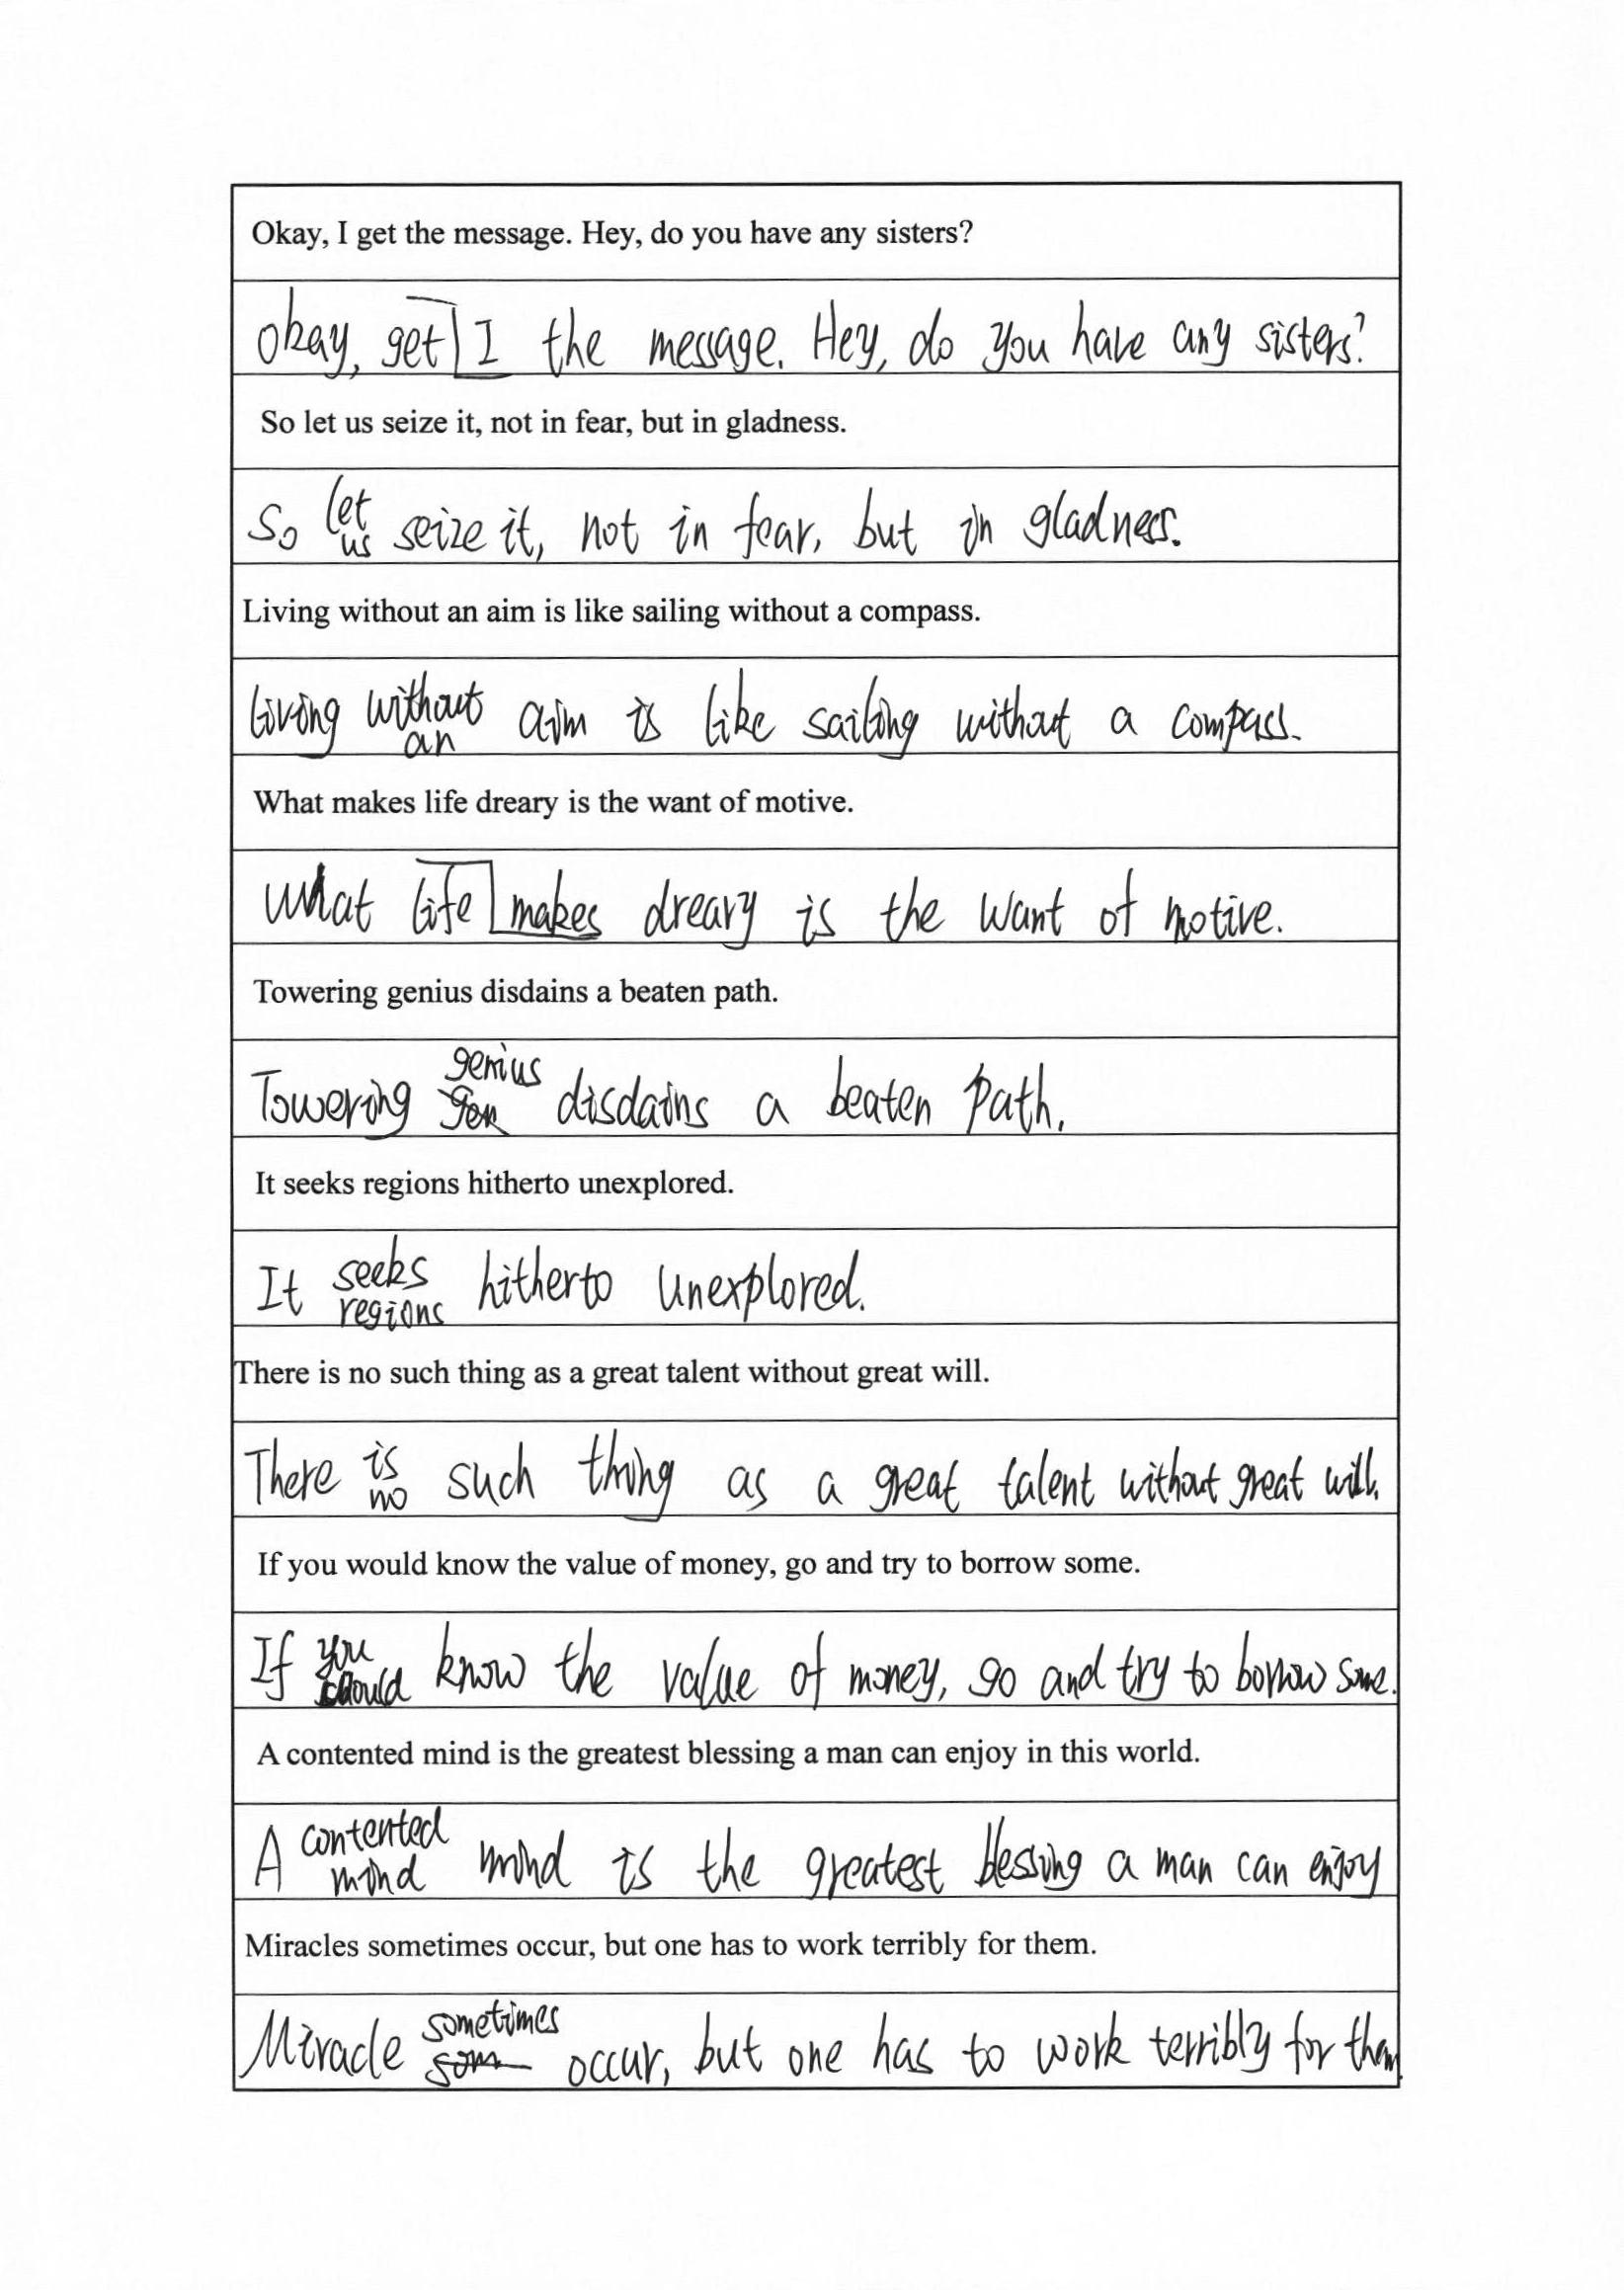 Okay, I get the message. Hey, do you have any sisters?
okay, get I the message. Hey, do you have any sisters?
So let us seize it, not in fear, but in gladness.
So let us seize it, not in fear, but in gladness.
Living without an aim is like sailing without a compass.
living without an aim is like sailing without a compass.
What makes life dreary is the want of motive.
What life makes dreary is the want of motive.
Towering genius disdains a beaten path.
Towering genius disdains a beaten path.
It seeks regions hitherto unexplored.
It seeks regions hitherto unexplored.
There is no such thing as a great talent without great will.
There is no such thing as a great talent without great will.
If you would know the value of money, go and try to borrow some.
If you know the value of money, go and try to borrow some.
A contented mind is the greatest blessing a man can enjoy in this world.
A contented mind mind is the greatest blessing a man can enjoy
Miracles sometimes occur, but one has to work terribly for them.
Miracle sometimes occur, but one has to work terribly for them.